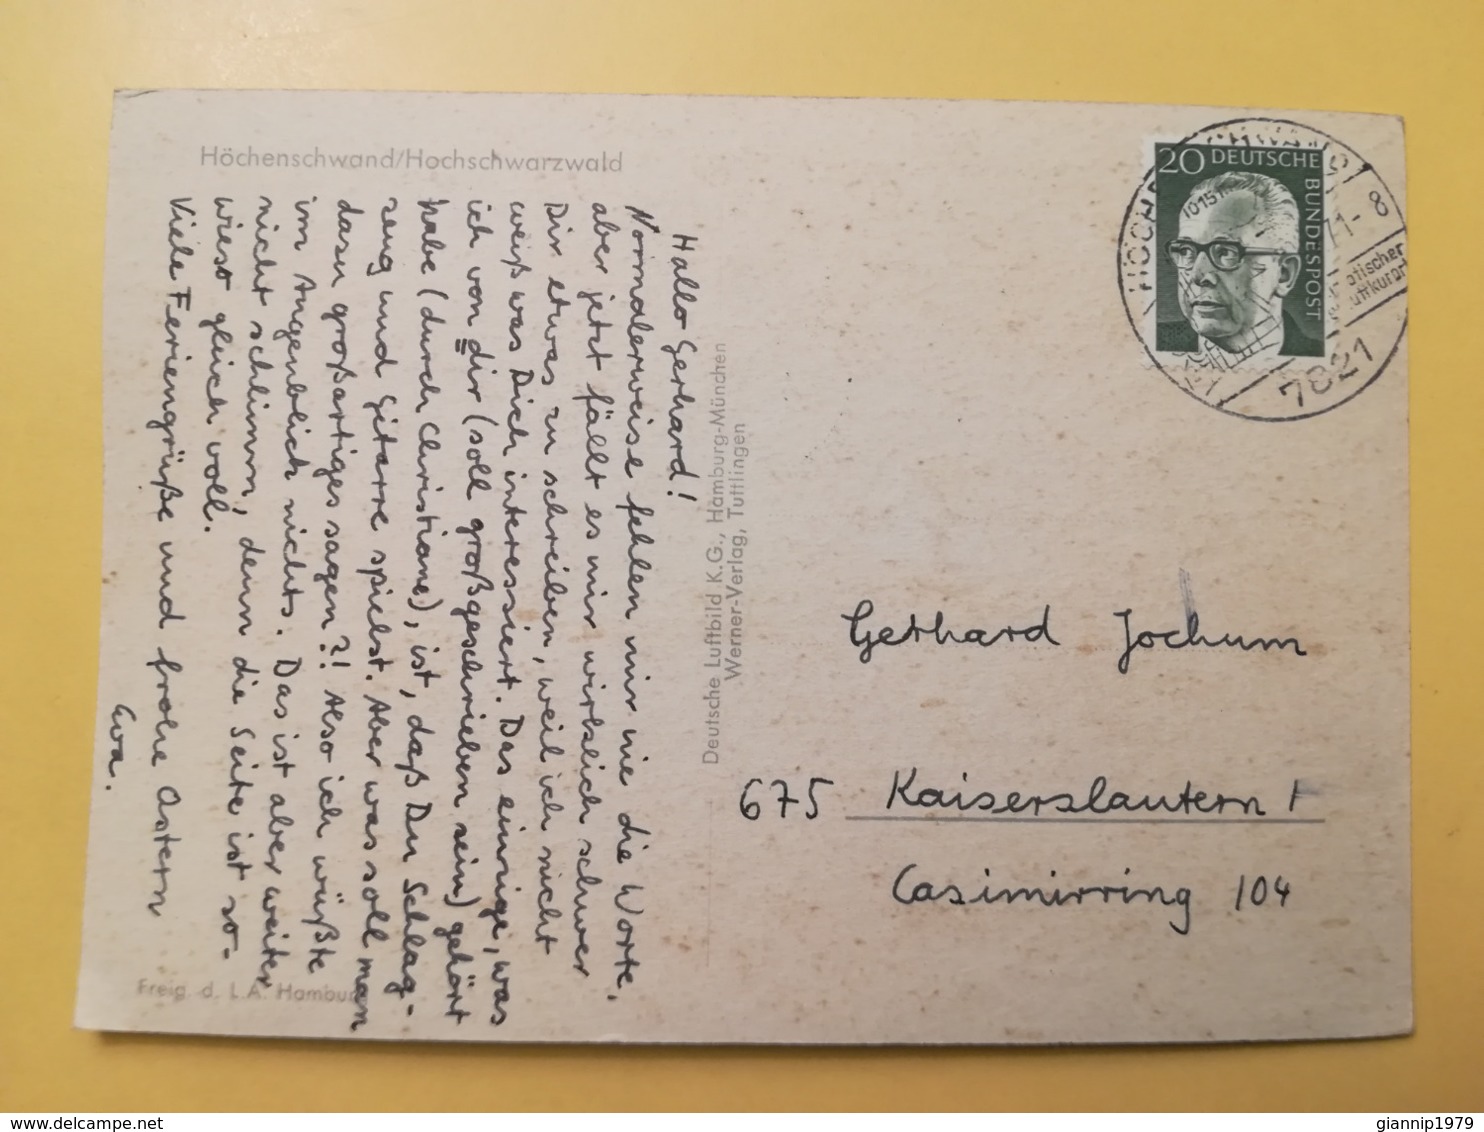 Höchenschwand/Hochschwarzwald
Hallo Gerhard!
Normalerweise fehlen mir nie die Worte,
aber jetzt fällt es mir wirklich schwer
Dir etwas zu schreiben, weil ich nicht
weiß was Dich interessiert. Das einzige, was
ich von dir (soll großgeschrieben sein) gehört
habe (durch Christiane), ist, daß Du Schlag-
zeug und Gitarre spielst. Aber was soll man
dazu großartiges sagen?! Also ich wüßte
im Augenblick nichts. Das ist aber weiter
nicht schlimm, denn die Seite ist so-
wieso gleich voll.
Viele Feriengrüße und frohe Ostern
Eva.
Freig. d. L.A. Hamburg
Deutsche Luftbild K.G., Hamburg-München
Werner-Verlag, Tuttlingen
20 DEUTSCHE
BUNDESPOST
71-8
7821
Gerhard Jochum
675 Kaiserslautern 1
Casimirring 104
delcampe.net
giannip1979